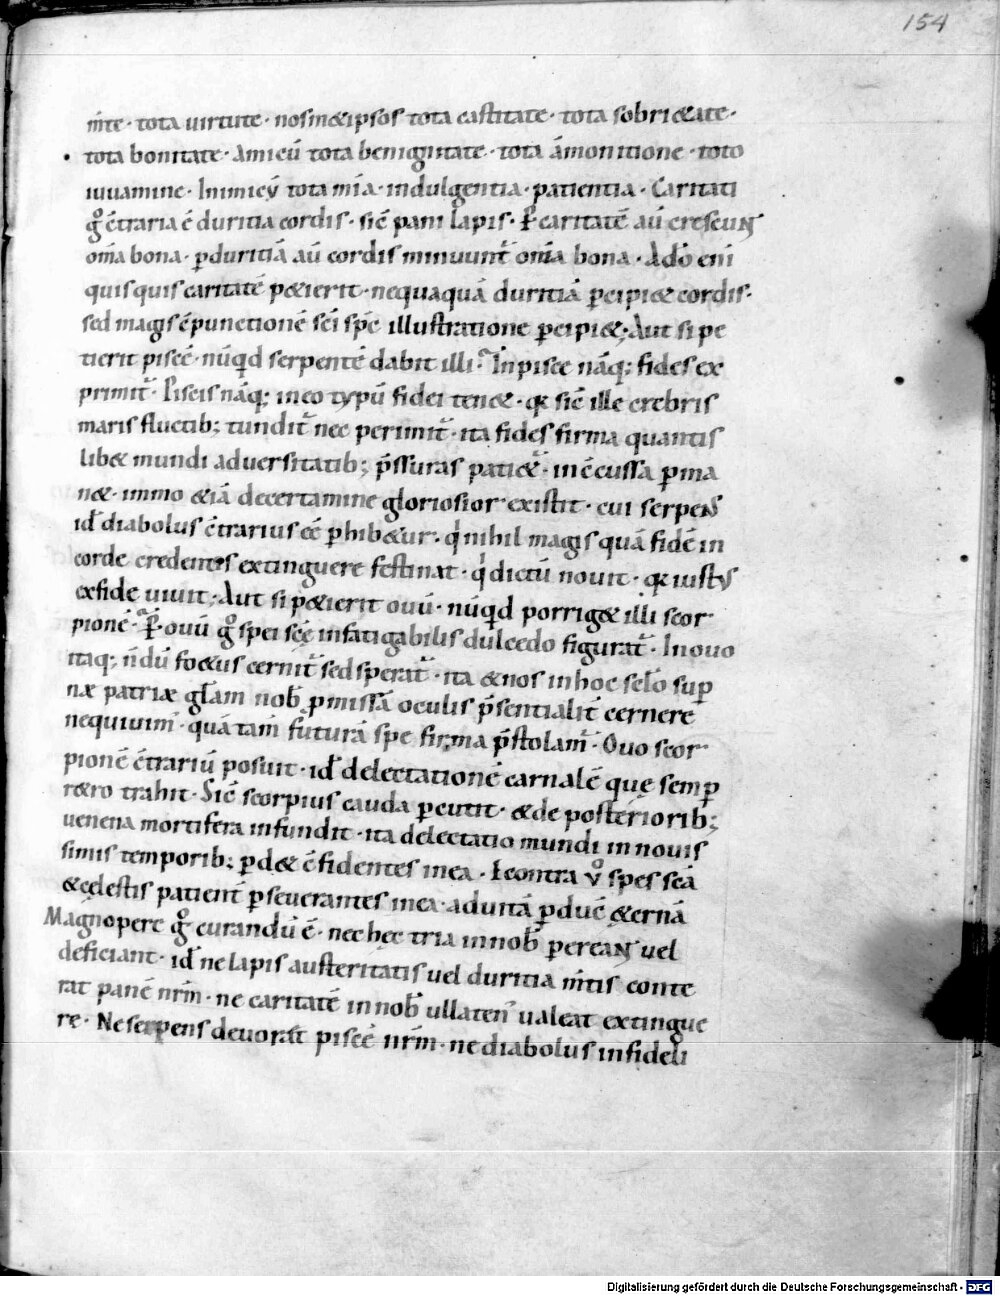 154
m̄te · tota uirtute · nosm&ipsos tota castitate · tota sobri&ate ·
tota bonitate · Amicū tota benignitate · tota āmonitione · toto
iuuamine · Inimicū tota mīa · indulgentia · patientia · Caritati
gͦ c̄traria ē duritia cordis · sic̄ pani lapis · P̱ caritatē aū crescuɴᴛ
om̄a bona · p̱duritiā aū cordis minuunt̄ om̄a bona · Ado eni
quisquis caritatē p&ierit · nequaquā duritiā p̱cipi& cordis ·
sed magis c̄punctionē sci sp̄c illustratione p̱cipi&; Aut si pe
tierit piscē · nūqd serpentē dabit illi · In pisce nāq; fides ex
primit̄ · Piscis nāq; in eo typū fidei ten& · qꝛ sic̄ ille crebris
maris fluctib; tundit̄ nec perimit̄ · ita fides firma quantis
lib& mundi aduersitatib; p̄ssuras pati&̄ · inc̄cussa p̱ma
n& · immo &iā decertamine gloriosior existit · cui serpeɴs
id̄ diabolus c̄trarius eē p̱hib&ur · qͥ nihil magis quā fidē in
corde credentis extinguere festinat · qͥ dictū nouit · qꝛ iustus
exfide uiuit; Aut si p&ierit ouū · nūqd porrig& illi scor
pionē · P̱ ouū gͦ spei scę infatigabilis dulcedo figurat̄ · In ouo
itaq; n̄dū foetus cernit̄ sed sperat̄ · ita & nos in hoc scl̄o sup̱
næ patriæ gl̄am nob̄ p̱missā oculis p̄sentialit̄ cernere
nequiuim̄ · quā tam̄ futurā spe firma p̄stolam̄ · Ouo scor
pionē c̄trariū posuit · id̄ delectationē carnalē quę semp̱
r&ro trahit · Sic̄ scorpius cauda p̱cutit · & de posteriorib;
uenena mortifera infundit · ita delectatio mundi in nouis
simis temporib; p̱d& c̄fidentes in ea · Econtra ūͦ spes scā
& cęlestis patient̄ p̱seuerantes in ea · ad uitā p̱duc̄ &ernā
Magnopere gͦ curandū ē · nec hęc tria in nob̄ pereaɴᴛ uel
deficiant · id̄ ne lapis austeritatis uel duritia m̄tis conte
rat panē nr̄m · ne caritatē in nob̄ ullaten̄ ualeat extingue
re · Ne serpens deuorat piscē nr̄m · ne diabolus in fideli
Digitalisierung gefördert durch die Deutsche Forschungsgemeinschaft - DFG